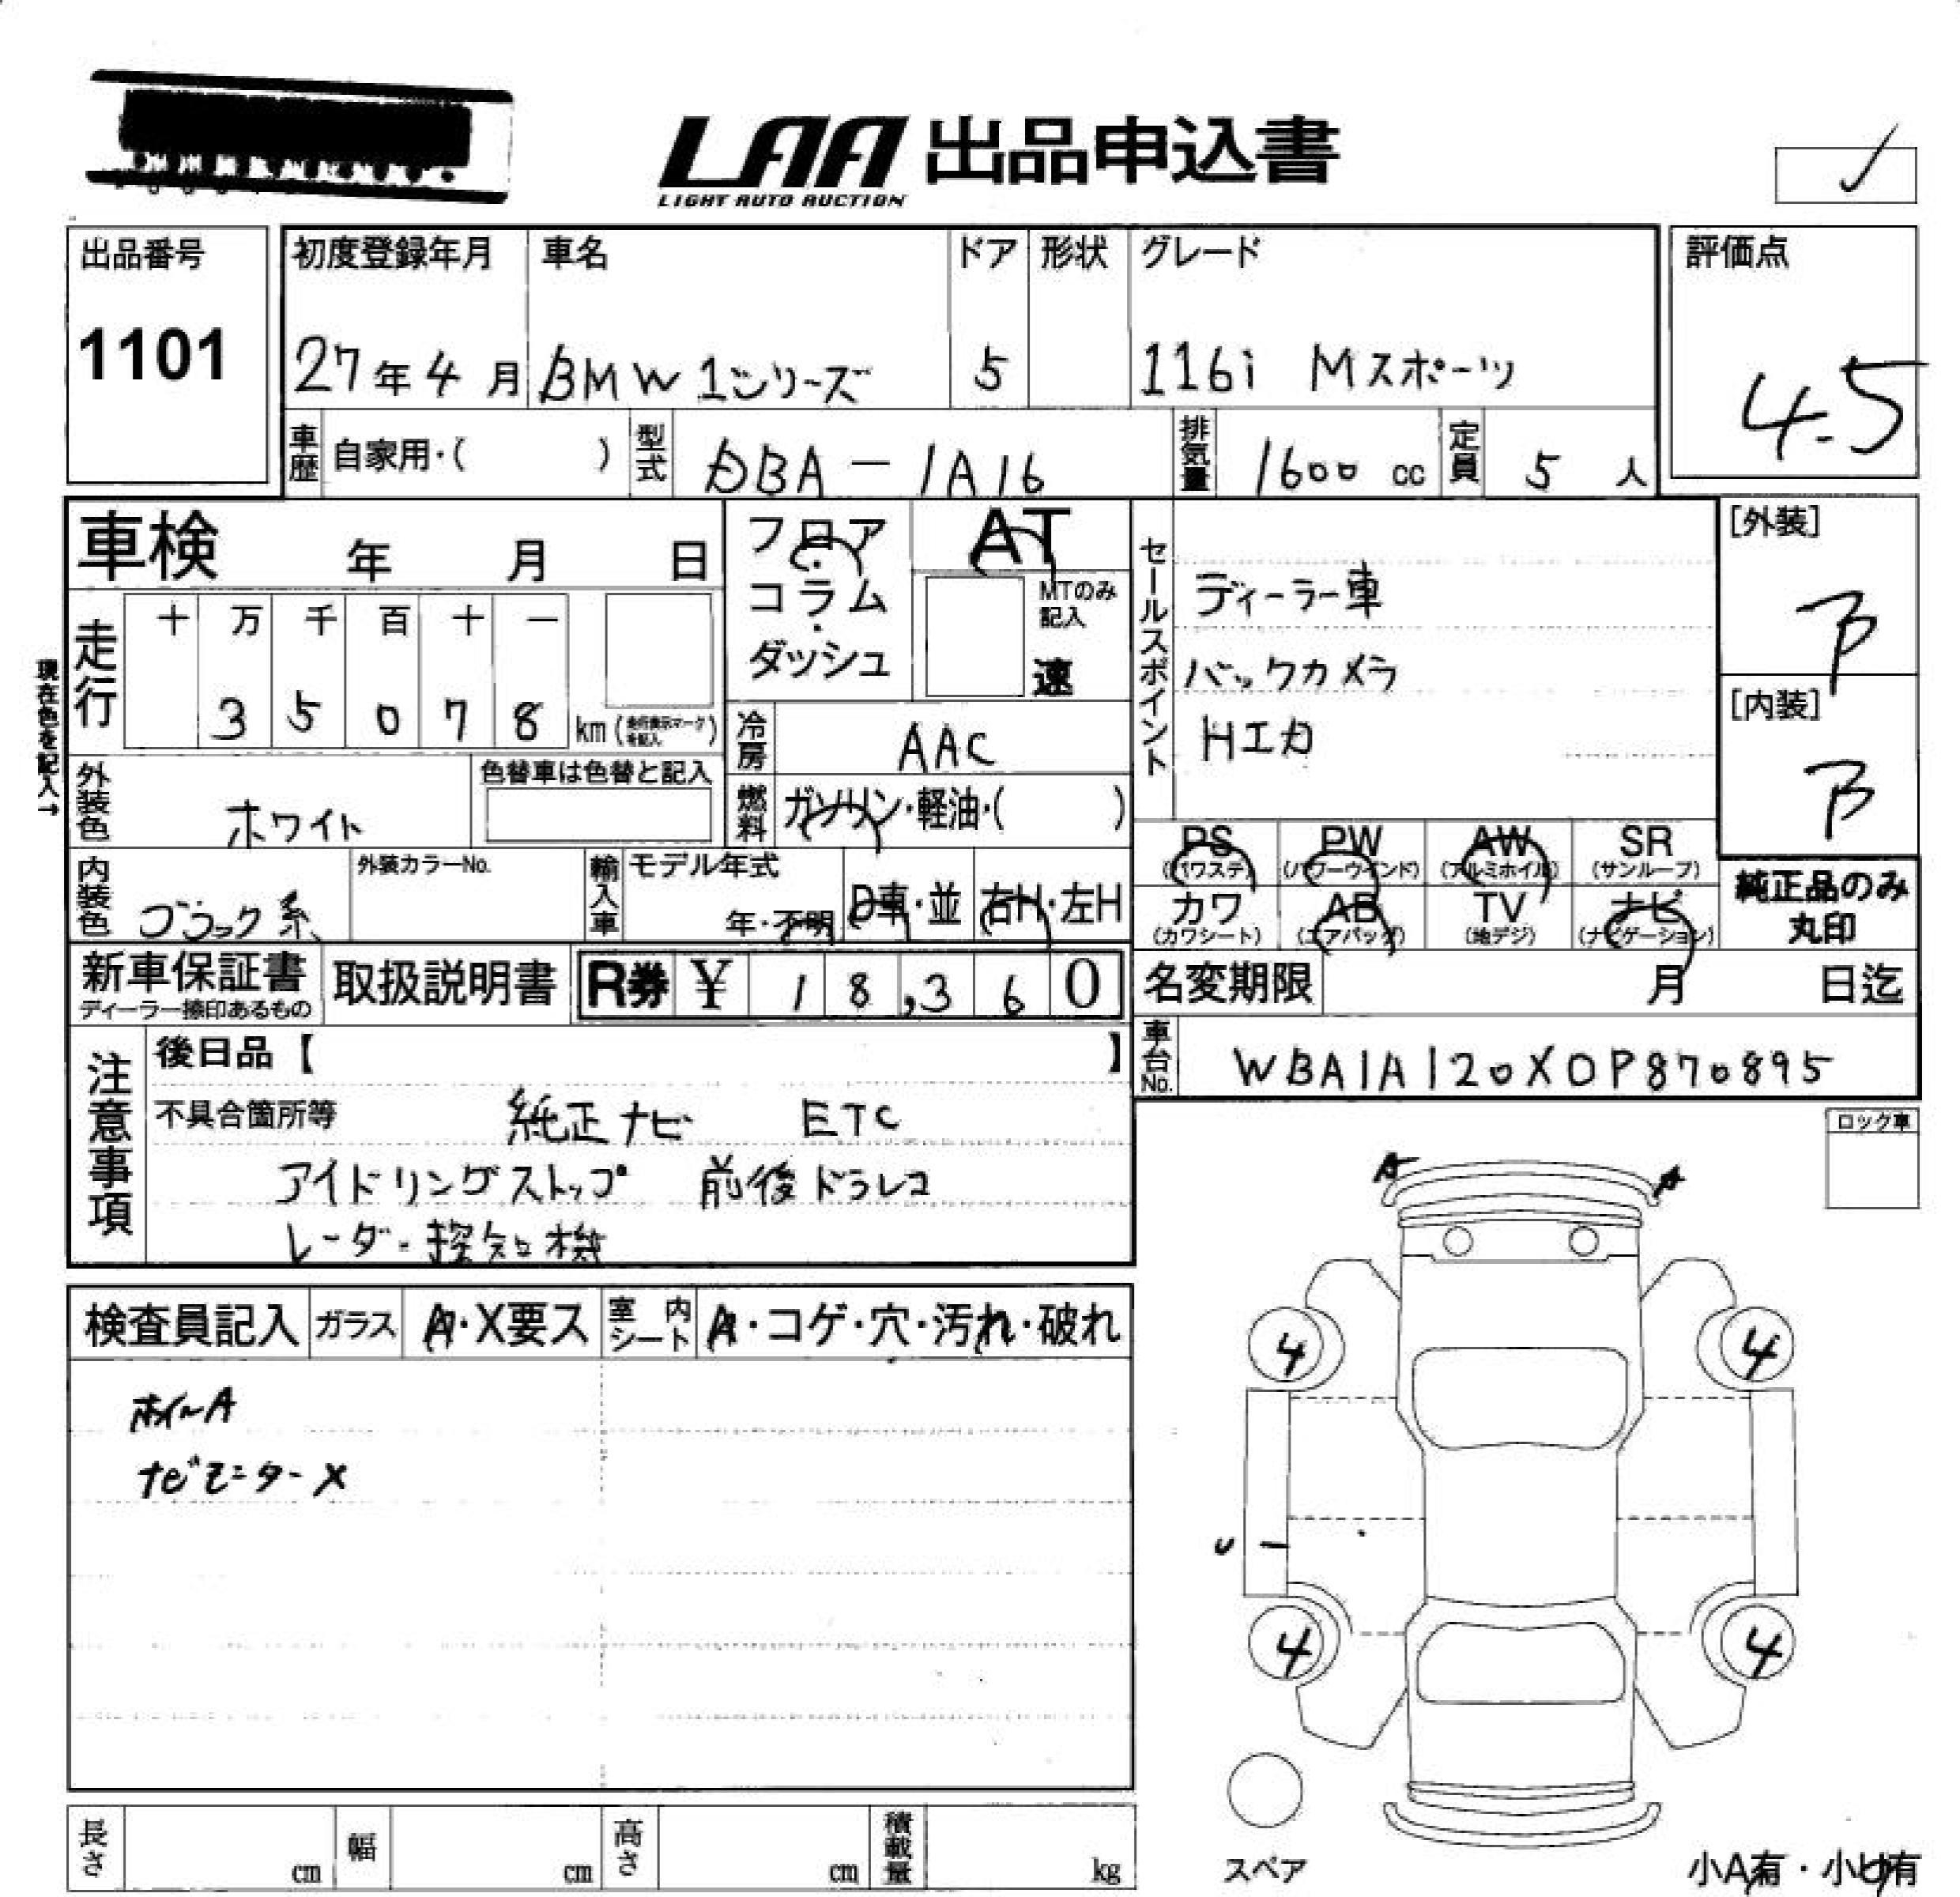 LAA 出品申込書
LIGHT AUTO AUCTION
出品番号
1101
初度登録年月 車名 ドア 形状 グレード
27年4月 BMW 1シリーズ 5 116i Mスポーツ
評価点
4.5
車歴 自家用・( ) 型式 DBA-1A16 排気量 1600 cc 定員 5 人
車検 年 月 日
フロア・コラム・ダッシュ
AT
MTのみ記入
速
セールスポイント
ディーラー車
バックカメラ
Hエカ
[外装]
B
[内装]
B
現在色を記入→
走行 十 万 千 百 十 一
3 5 0 7 8 km (走行表示マークを記入)
冷房 AAC
外装色 ホワイト
色替車は色替と記入
燃料 ガソリン・軽油・( )
内装色 ブラック系
外装カラーNo.
輸入車 モデル年式 年・不明 D車・並 右H・左H
PS (パワステ) PW (パワーウインド) AW (アルミホイル) SR (サンルーフ)
カワ (カワシート) AB (エアバッグ) TV (地デジ) ナビ (ナビゲーション)
純正品のみ丸印
新車保証書
ディーラー捺印あるもの
取扱説明書
R券 ¥ 18,360
名変期限 月 日迄
車台No. WBA1A120X0P870895
注意事項
後日品【 】
不具合箇所等 純正ナビ ETC
アイドリングストップ 前後ドラレコ
レーダー探知機
ロック車
検査員記入 ガラス A・X要ス 室内シート A・コゲ・穴・汚れ・破れ
ホイールA
ナビモニターX
A A
4 4
U
4 4
スペア
小A有・小U有
長さ cm 幅 cm 高さ cm 積載量 kg